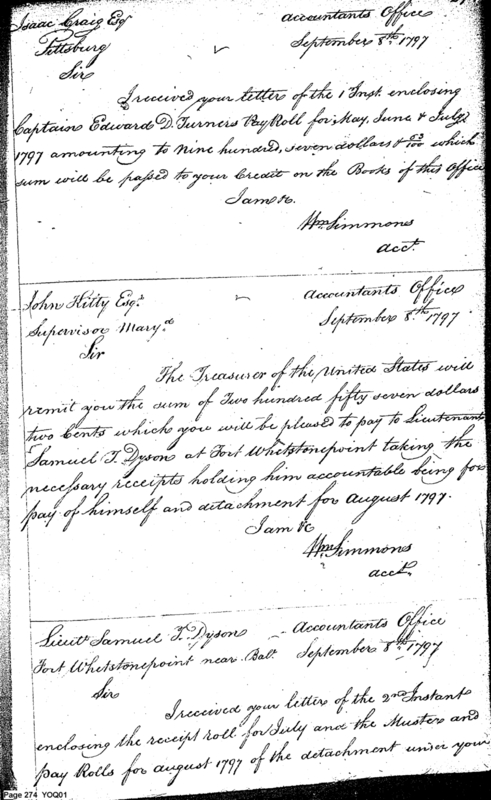 Isaac Craig Esqr
Accountants Office
Pittsburg
September 8th 1797
Sir
I received your letter of the 1 Inst. enclosing
Captain Edward D. Turners Pay Roll for May, June & July
1797 amounting to Nine hundred, seven dollars & 63/100 which
sum will be passed to your Credit on the Books of this Office
I am &c.
Wm Simmons
acct.
John Kitty Esqr
Accountants Office
Supervisor Maryd
September 8th 1797
Sir
The Treasurer of the United States will
remit you the sum of Two hundred fifty seven dollars
two Cents which you will be pleased to pay to Lieutenant
Samuel T. Dyson at Fort Whetstonepoint taking the
necessary receipts holding him accountable being for
pay of himself and detachment for August 1797.
I am &c
Wm Simmons
acct.
Lieutt Samuel T. Dyson
Accountants Office
Fort Whetstonepoint near Balt
September 8th 1797
Sir
I received your letter of the 2nd Instant
enclosing the receipt roll for July and the Muster and
pay Rolls for august 1797 of the detachment under your
Page 274 YOQ01